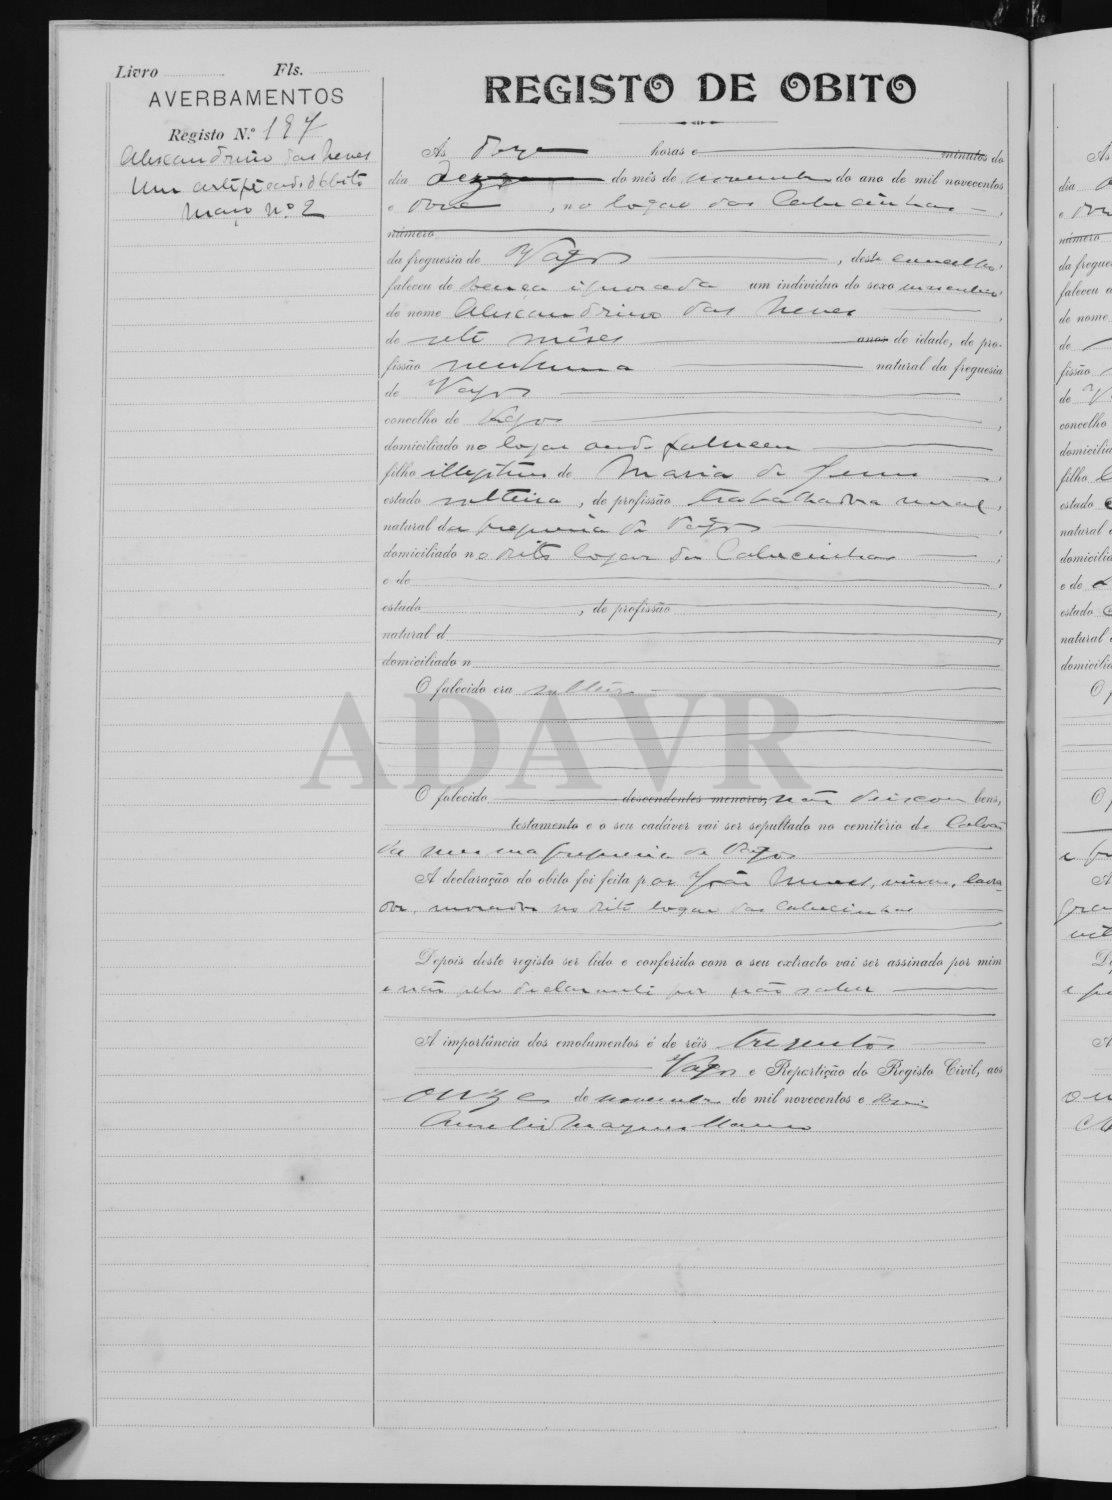 Livro Fls.
AVERBAMENTOS
Registo N.º 197
Alexandrino das Neves
Um certificado d'obito
Maço nº 2
REGISTO DE OBITO
Ás doze horas e minutos do
dia dez do mês de novembro do ano de mil novecentos
e doze, no logar das Cabecinhas,
número
da freguesia de Vagos, deste concelho,
faleceu de doença ignorada um individuo do sexo masculino
de nome Alexandrino das Neves,
de sete mêses anos de idade, de pro-
fissão nenhuma natural da freguesia
de Vagos,
concelho de Vagos,
domiciliado no logar onde faleceu
filho illegitimo de Maria de Jesus,
estado solteira, de profissão trabalhadora rural,
natural da freguesia de Vagos,
domiciliado no dito logar das Cabecinhas;
e de,
estado, de profissão,
natural d,
domiciliado n
O falecido era solteiro
O falecido descendentes menores, não deixou bens,
testamento e o seu cadáver vai ser sepultado no cemitério de Calvão
da mesma freguesia de Vagos
A declaração do obito foi feita por João Nunes, viuvo, lavra-
dor, morador no dito logar das Cabecinhas
Depois deste registo ser lido e conferido com o seu extracto vai ser assinado por mim
e não pelo declarante por não saber
A importância dos emolumentos é de réis trezentos
Vagos e Repartição do Registo Civil, aos
onze de novembro de mil novecentos e doze
ADAVR